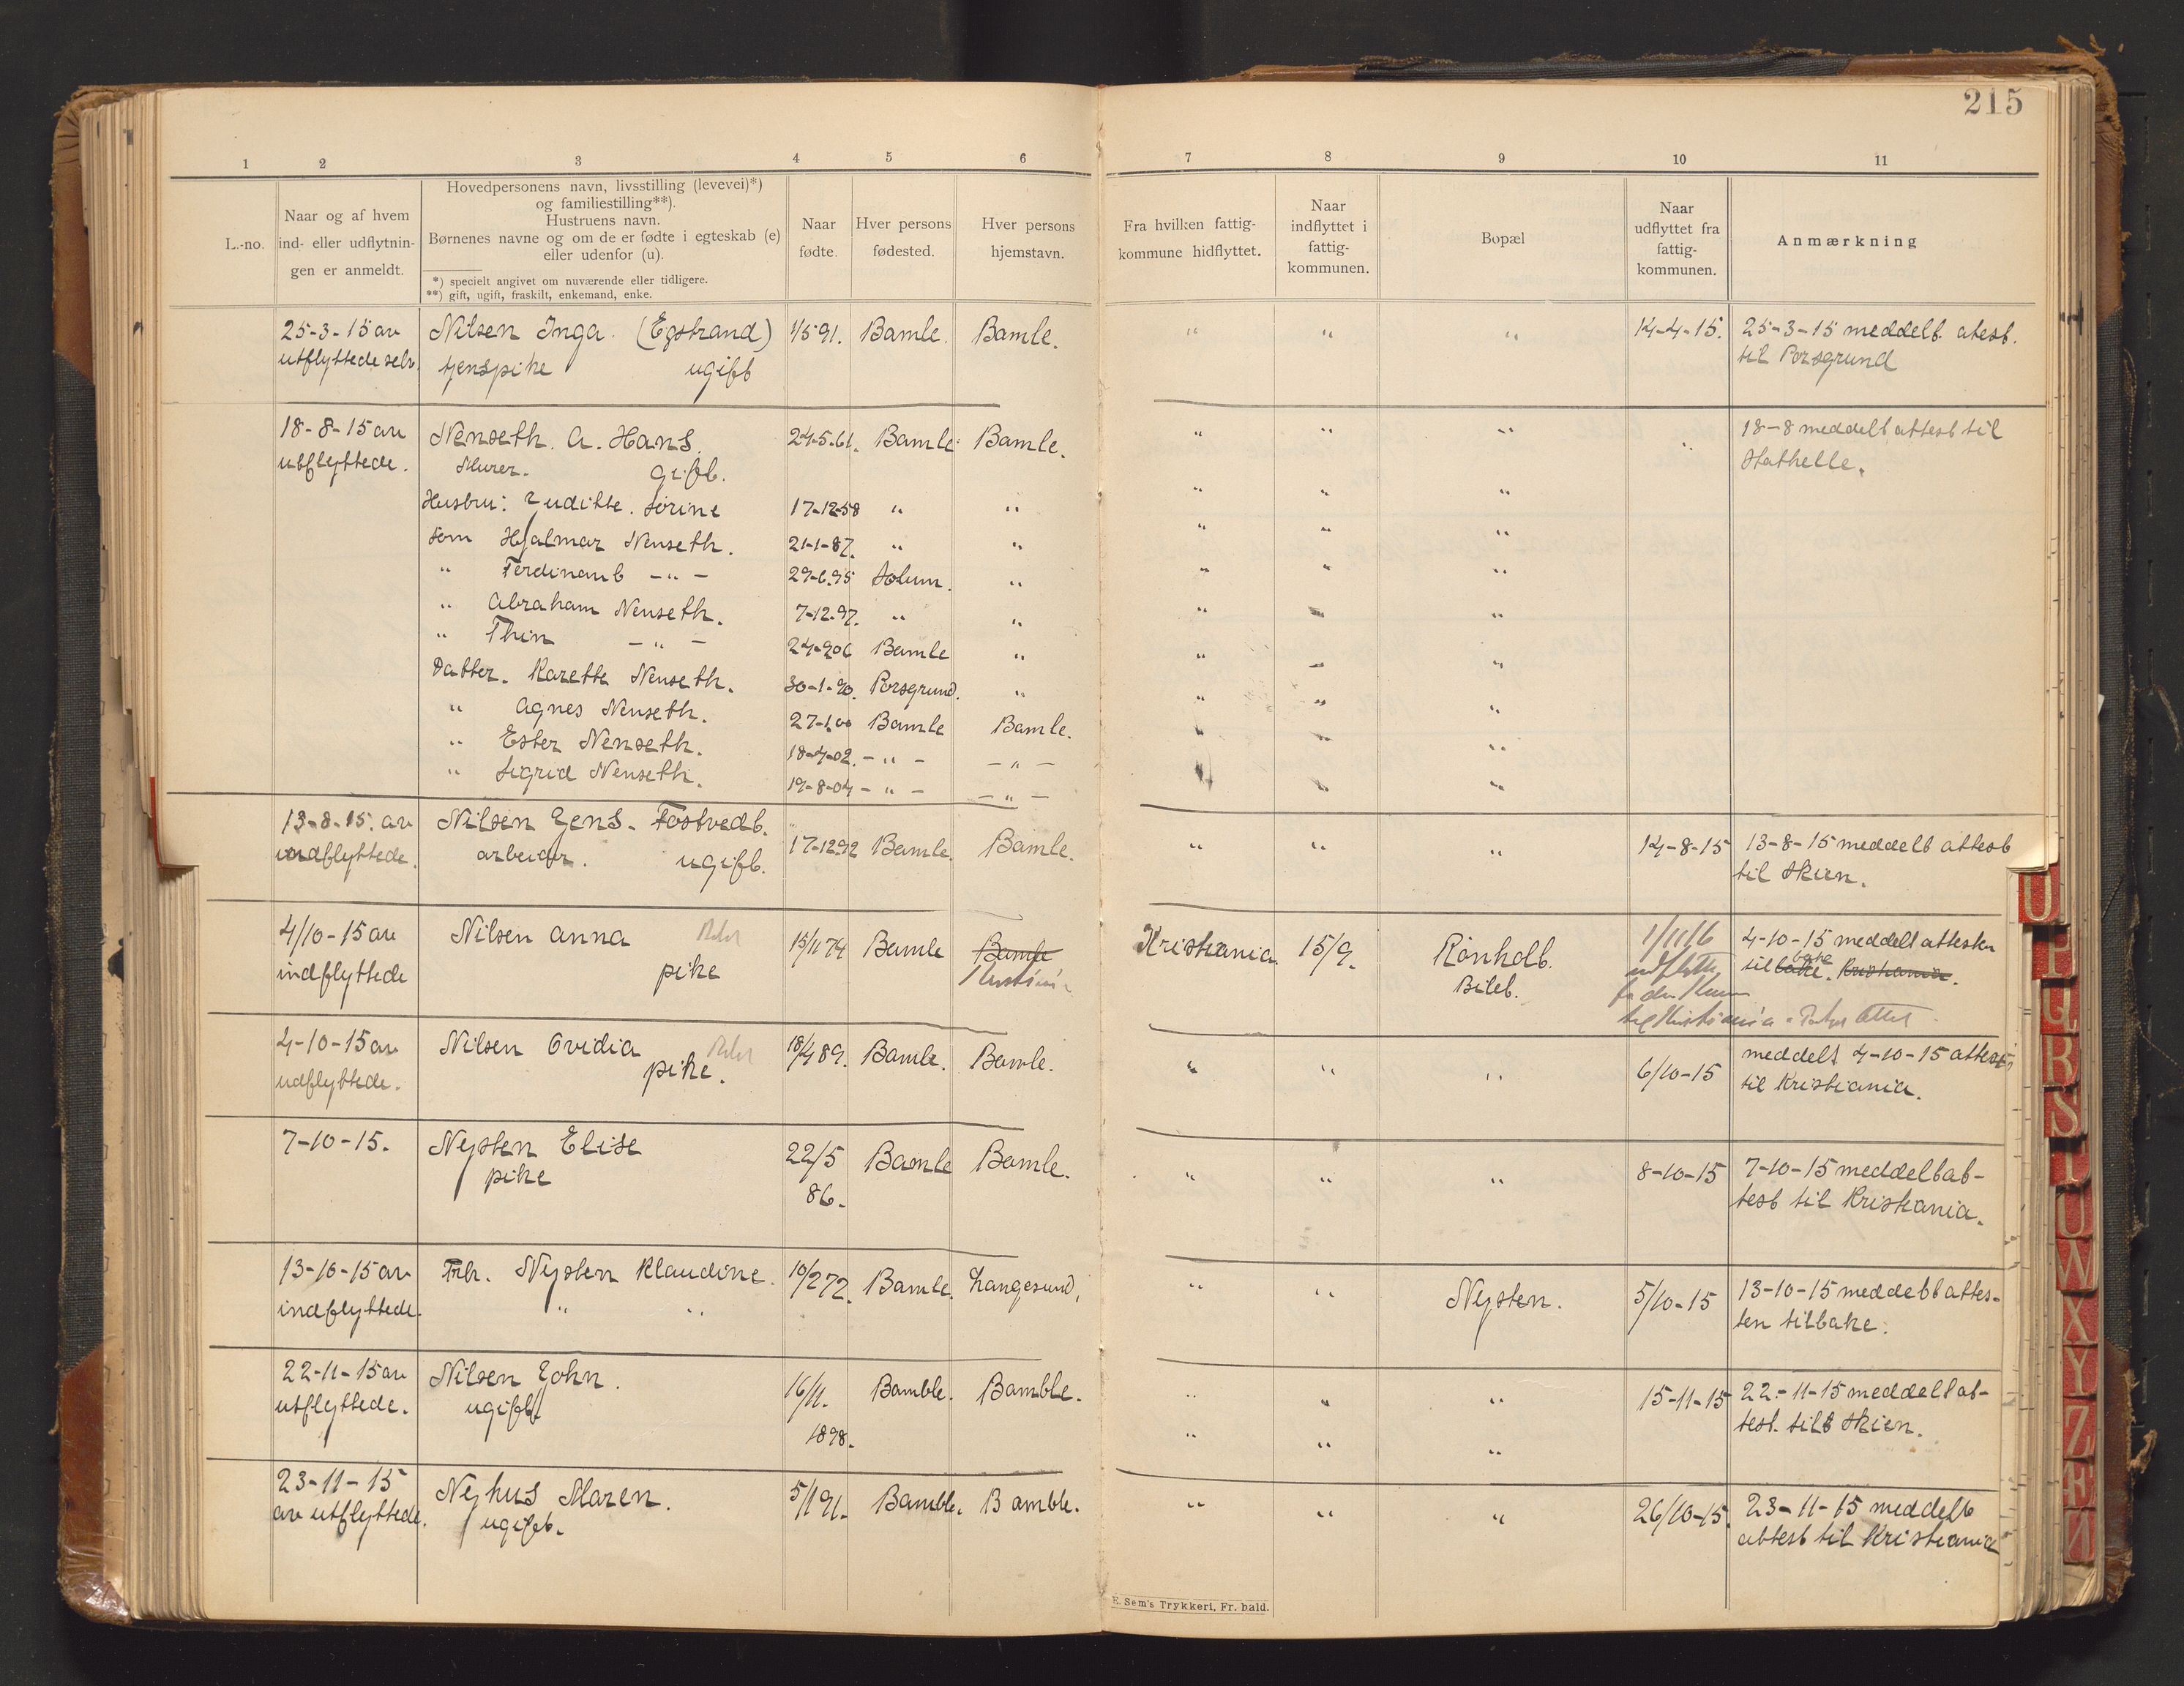 215
1 2 3 4 5 6 7 8 9 10 11
L.-no.
Naar og af hvem
ind- eller udflytnin-
gen er anmeldt.
Hovedpersonens navn, livsstilling (levevei)*)
og familiestilling**).
Hustruens navn.
Børnenes navne og om de er fødte i egteskab (e)
eller udenfor (u).
*) specielt angivet om nuværende eller tidligere.
**) gift, ugift, fraskilt, enkemand, enke.
Naar
fødte.
Hver persons
fødested.
Hver persons
hjemstavn.
Fra hvilken fattig-
kommune hidflyttet.
Naar
indflyttet i
fattig-
kommunen.
Bopæl
Naar
udflyttet fra
fattig-
kommunen.
Anmærkning
25-3-15 av Nilsen Inga. (Egstrand) 1/5 91. Bamle. Bamle. " " " 14-4-15. 25-3-15 meddelt. atest.
utflyttede selv. tjenspike ugift til Porsgrund
18-8-15 av Nenseth. A. Hans. 24-5.61. Bamle. Bamle. " " " " 18-8 meddelt attest til
utflyttede. Murer. Gift. Stathelle.
Hustru: Juditte. Sørine 17-12-58 " " " " "
Søn Hjalmar Nenseth. 21-1-87. " " " " "
" Ferdinant -"- 29-6.95 Solum. " " " "
" Abraham Nenseth. 7-12.97. " " " "
" Thin -"- 24-906 Bamle " " "
Datter. Karette Nenseth. 30-1-90. Porsgrund. " " "
" Agnes Nenseth. 27-1.00 Bamle Bamle. "
" Ester Nenseth. 18-4-02. -"- -"- "
" Sigrid Nenseth. 19-8-04 -"- -"- "
13-8-15. av Nilsen Jens. Tostvedt. 17-12 92 Bamle. Bamle. " " " 14-8-15 13-8-15 meddelt attest
indflyttede. arbeider. ugift. til Skien.
4/10-15 av Nilsen Anna 15/11 74 Bamle Bamle Kristiania. 15/9. Rønholt. 1/11 16 4-10-15 meddelt attesten
indflyttede pike Kristiania Bileb. tilbake. Kristiania.
til Kristiania
4-10-15 av Nilsen Ovidia 18/4 89. Bamle. Bamle. " " " 6/10-15 meddelt 4-10-15 attest
udflyttede. pike. til Kristiania.
7-10-15. Nysten Elise 22/5 Bamle Bamle. " " " 8-10-15 7-10-15 meddelt at-
pike 86. test til Kristiania.
13-10-15 av Frk. Nysten Klaudine. 10/2 72. Bamle. Langesund, " " Nysten. 5/10-15 13-10-15 meddelt attes-
indflyttede. " " ten tilbake.
22-11-15 av Nilsen John. 16/11. Bamble. Bamble. " " " 15-11-15 22-11-15 meddelt at-
utflyttede. ugift. 1898. " " " test. til Skien.
23-11-15 Nyhus Maren. 5/1 91. Bamble. Bamble. " " " 26/10-15. 23-11-15 meddelt
av utflyttede. ugift. attest til Kristiania
E. Sem's Trykkeri, Fr. hald.
O
P
Q
R
S
T
U
W
X
Y
Z
Æ
Ø